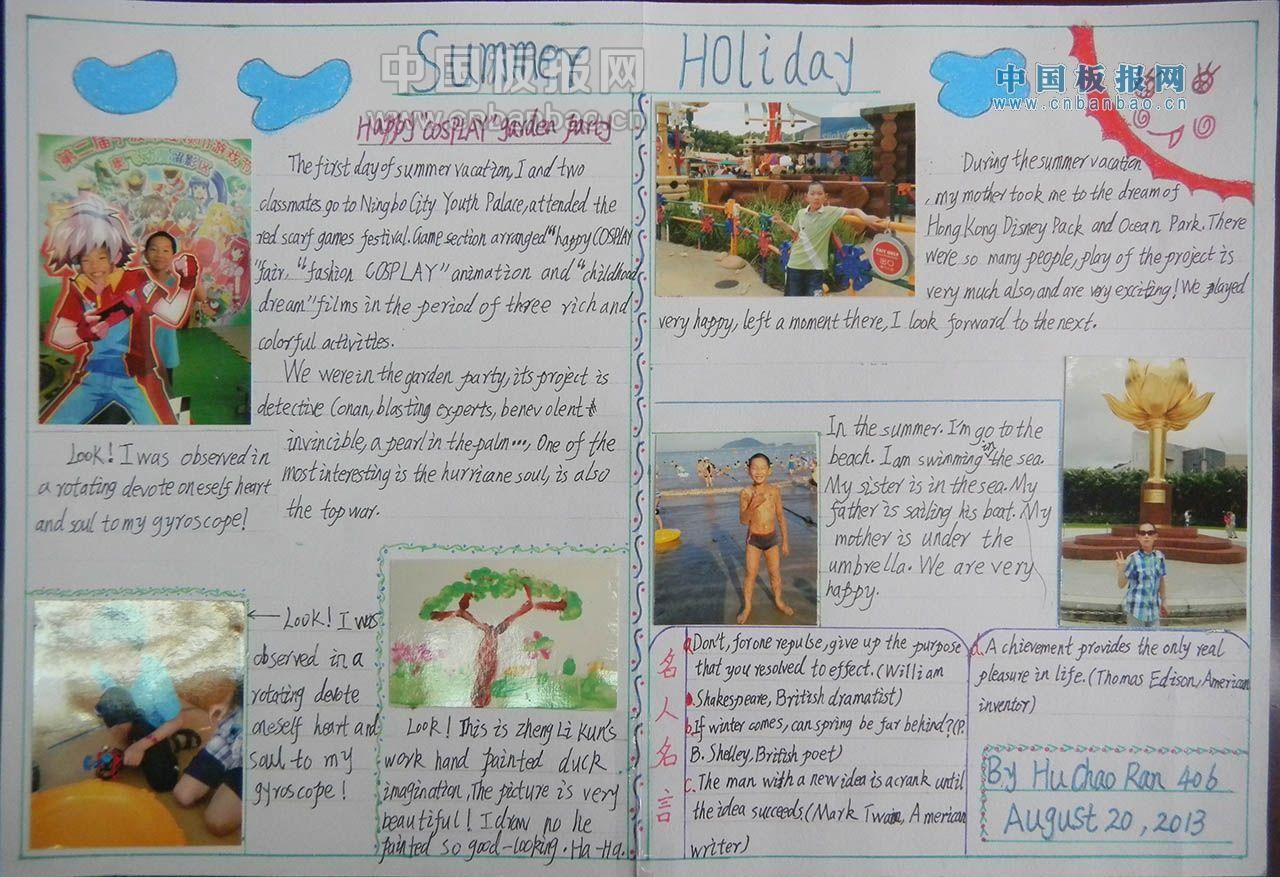 Summer Holiday
中国板报网
www.cnbanbao.cn
中国板报网
www.cnbanbao.cn
Happy "COSPLAY" garden party
The first day of summer vacation, I and two
classmates go to Ningbo City Youth Palace, attended the
red scarf games festival. Game section arranged "happy COSPLAY
"fair, "fashion COSPLAY" animation and "childhood
dream" films in the period of three rich and
colorful activities.
We were in the garden party, its project is
detective Conan, blasting experts, benevolent
invincible, a pearl in the palm..., One of the
most interesting is the hurricane soul, is also
the top war.
Look! I was observed in
a rotating devote oneself heart
and soul to my gyroscope!
Look! I was
observed in a
rotating devote
oneself heart and
soul to my
gyroscope!
Look! This is zheng Li kun's
work hand painted duck
imagination, The picture is very
beautiful! I draw no he
painted so good-looking. Ha-Ha.
During the summer vacation
, my mother took me to the dream of
Hong Kong Disney Pack and Ocean Park. There
were so many people, play of the project is
very much also, and are very exciting! We played
very happy, left a moment there, I look forward to the next.
In the summer. I'm go to the
beach. I am swimming in the sea.
My sister is in the sea. My
father is sailing his boat. My
mother is under the
umbrella. We are very
happy.
名人名言
a. Don't, for one repulse, give up the purpose
that you resolved to effect. (William
Shakespeare, British dramatist)
b. If winter comes, can spring be far behind? (P.
B. Shelley, British poet)
c. The man with a new idea is a crank until
the idea succeeds. (Mark Twain, American
writer)
d. A chievement provides the only real
pleasure in life. (Thomas Edison, American
inventor)
By Hu Chao Ran 406
August 20, 2013